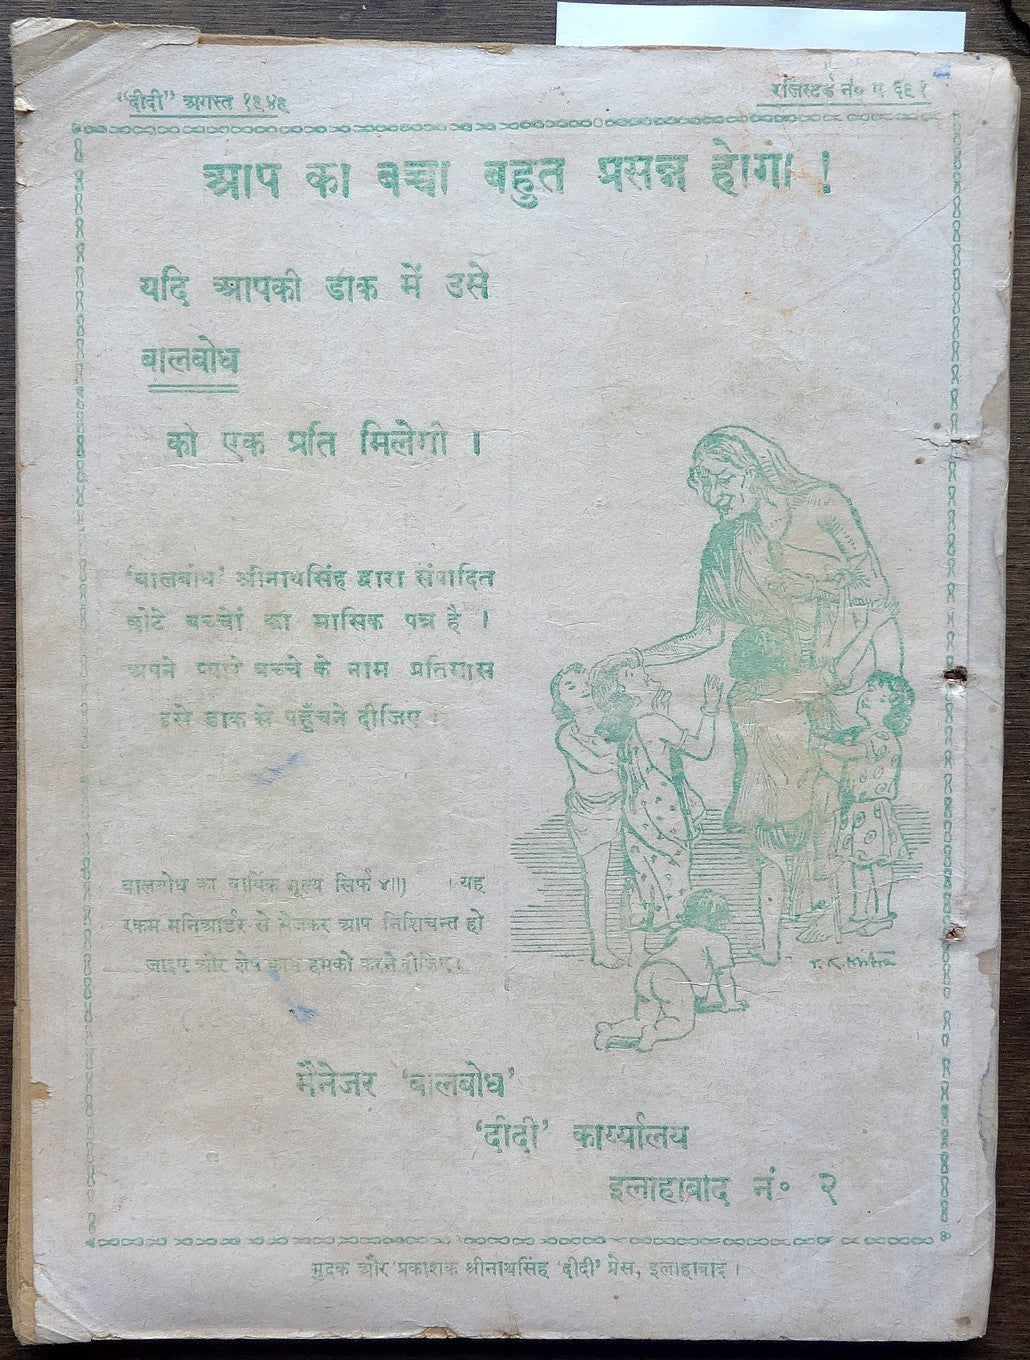 "दीदी" अगस्त १९४९
रजिस्टर्ड नं० ए ६९१
आप का बच्चा बहुत प्रसन्न होगा !
यदि आपकी डाक में उसे
बालबोध
की एक प्रति मिलेगी ।
'बालबोध' श्रीनाथसिंह द्वारा संपादित
छोटे बच्चों का मासिक पत्र है ।
अपने प्यारे बच्चे के नाम प्रतिमास
इसे डाक से पहुँचने दीजिए ।
बालबोध का वार्षिक मूल्य सिर्फ ४॥) । यह
रकम मनिआर्डर से भेजकर आप निश्चिन्त हो
जाइए और शेष काम हमको करने दीजिए ।
T. K. Mitra
मैनेजर 'बालबोध'
'दीदी' कार्य्यालय
इलाहाबाद नं० २
मुद्रक और प्रकाशक श्रीनाथसिंह 'दीदी' प्रेस, इलाहाबाद ।